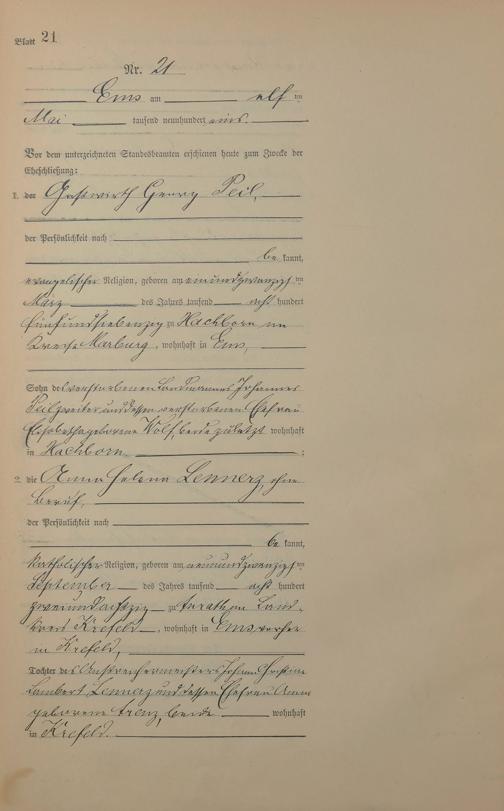 Blatt 21
Nr. 21
Ems am elf ten
Mai tausend neunhundert eins.
Vor dem unterzeichneten Standesbeamten erschienen heute zum Zwecke der
Eheschließung:
1. der Gastwirth Georg Peil,
der Persönlichkeit nach
be kannt,
evangelischer Religion, geboren am einundzwanzigsten
März des Jahres tausend acht hundert
fünfundsiebenzig zu Hachborn im
Kreise Marburg, wohnhaft in Ems,
Sohn des verstorbenen Landmannes Johannes
Peil zweiter und dessen verstorbenen Ehefrau
Elisabetha geborene Wolf, beide zuletzt wohnhaft
in Hachborn ;
2. die Anna Helena Lennerz, ohne
Beruf,
der Persönlichkeit nach
be kannt,
katholischer Religion, geboren am neunundzwanzigsten
September des Jahres tausend acht hundert
zweiundachtzig zu Land-
kreis Krefeld, wohnhaft in Ems, vorher
in Krefeld,
Tochter des Anstreichermeisters Johann Christian
Lambert Lennerz und dessen Ehefrau Anna
geborene beide wohnhaft
in Krefeld.